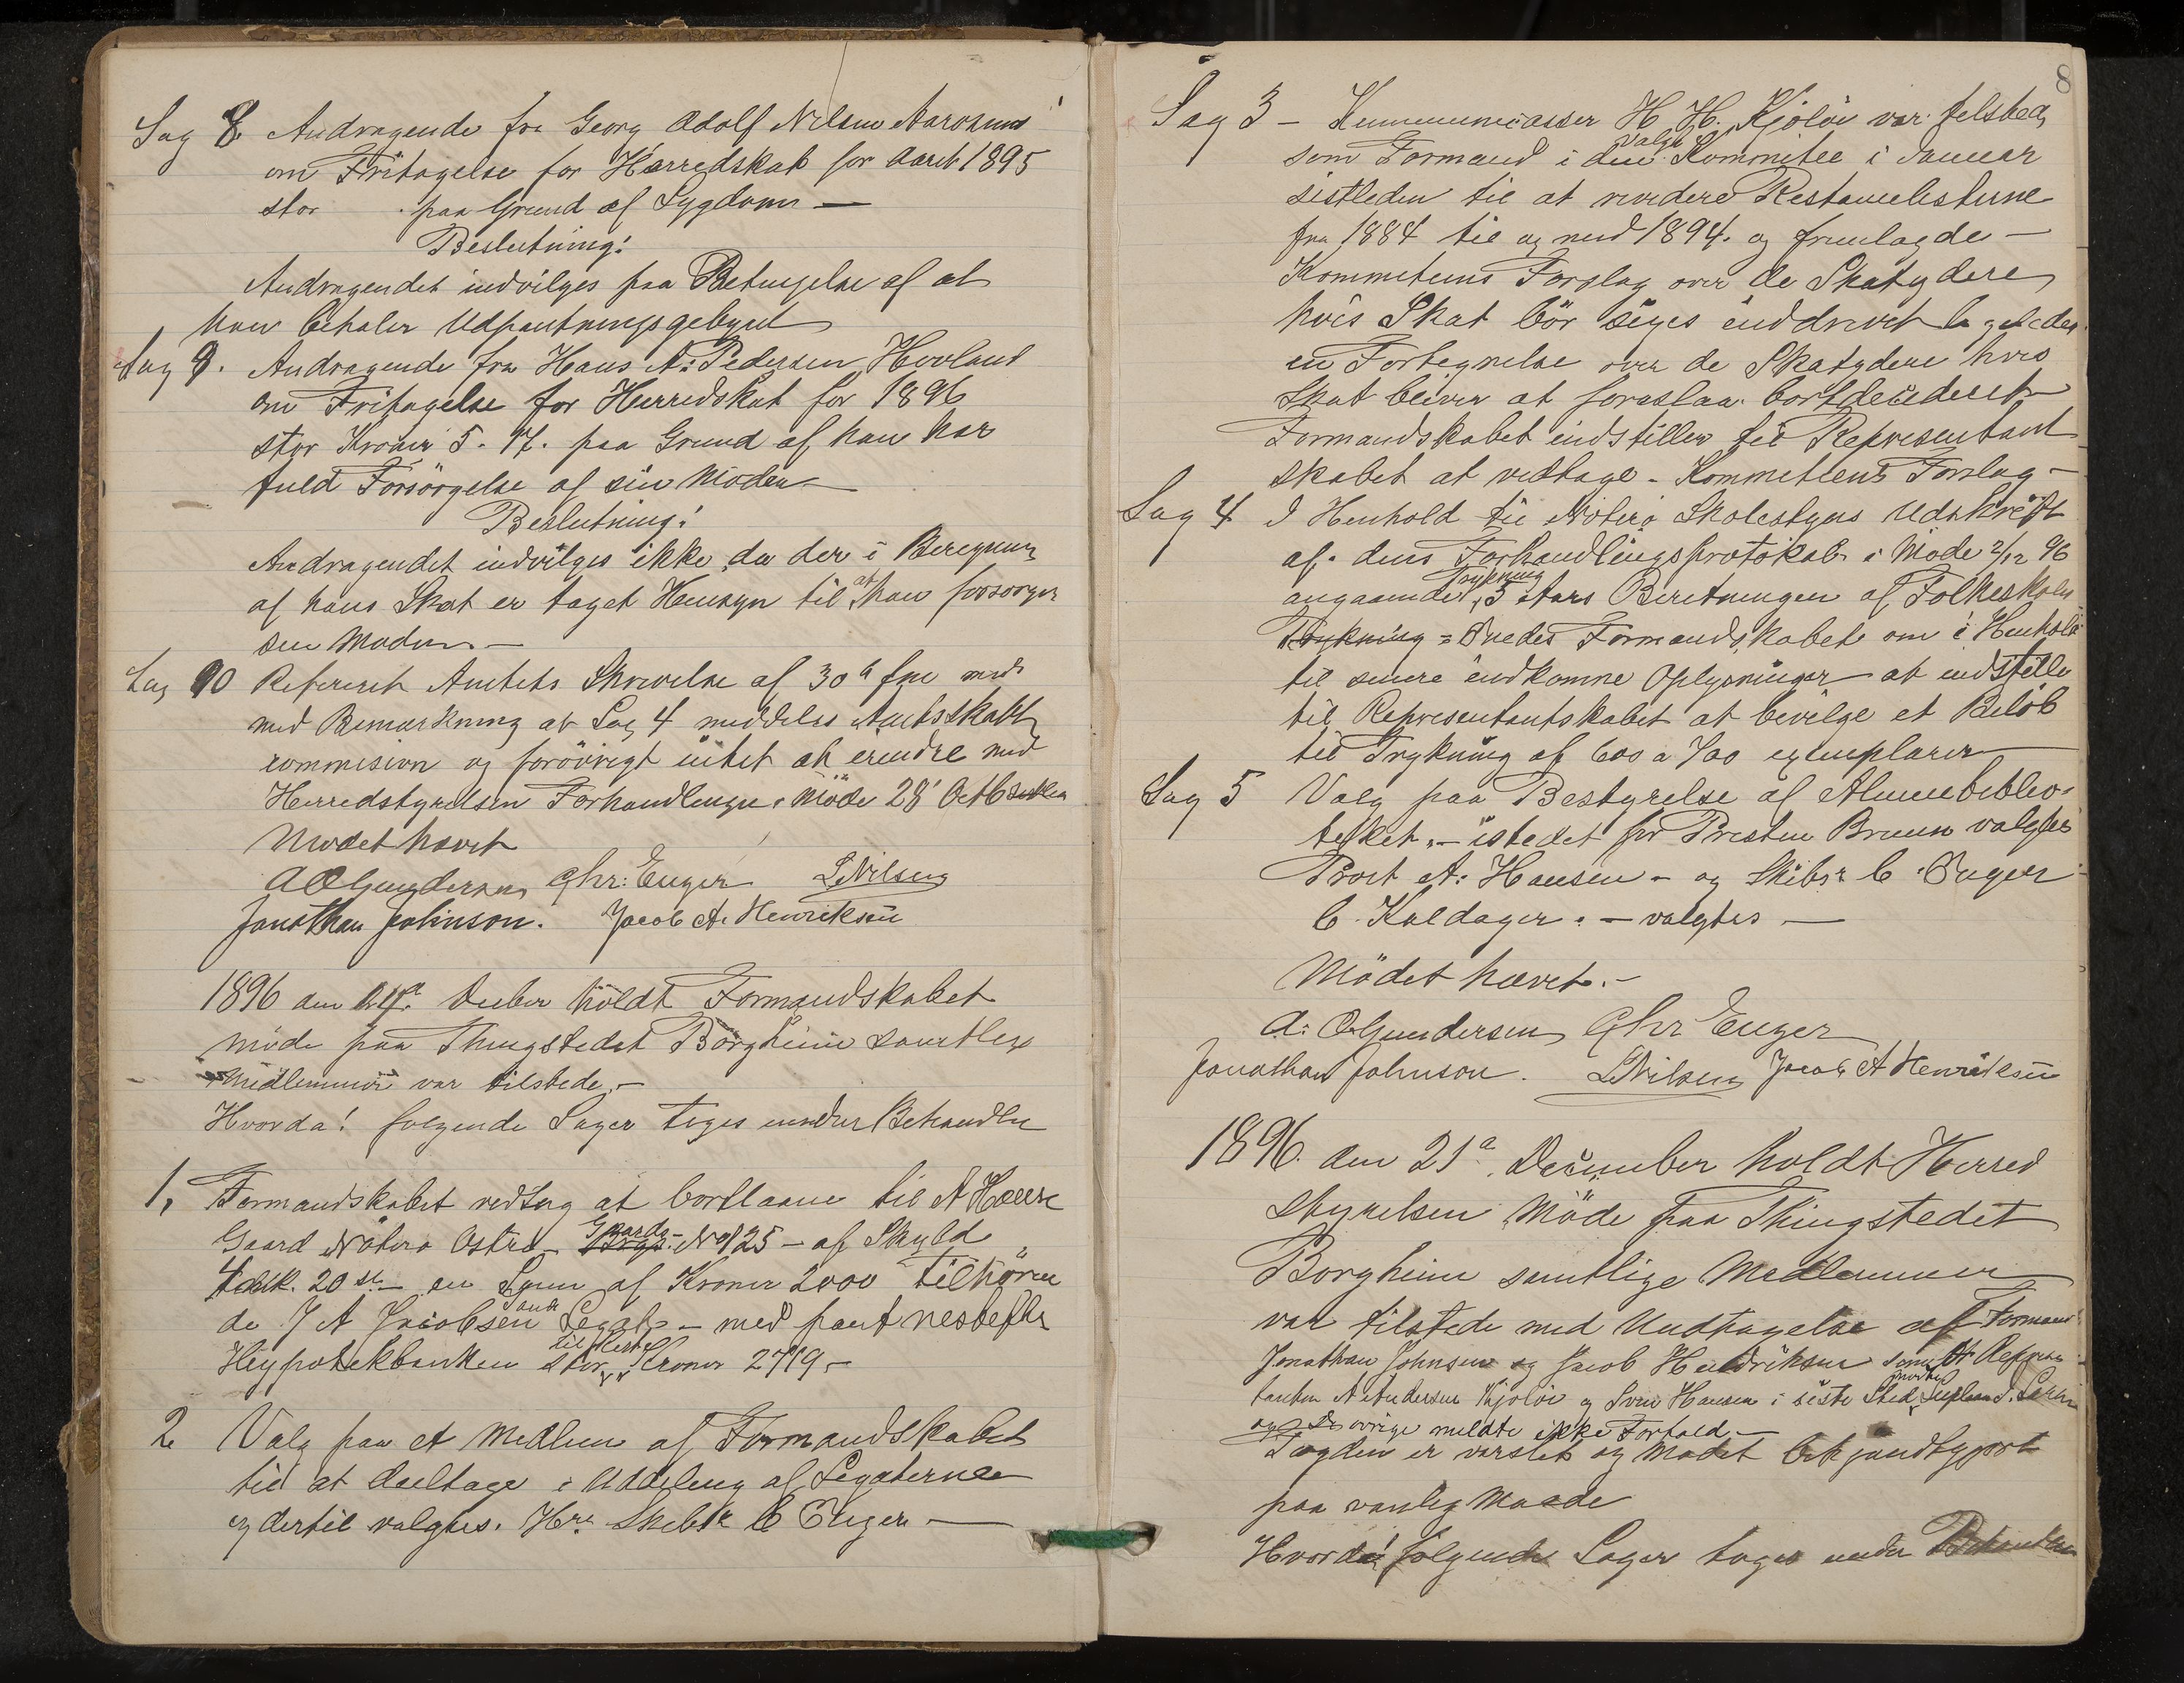 Sag 8 Andragende fra Georg Adolf Nilsen Aarøsund
om Fritagelse for Herredskat for Aaret 1895
stor paa Grund af Sygdom —
Beslutning:
Andragendet indvilges paa Betingelse af at
han betaler Udpantningsgebyret
Sag 9. Andragende fra Hans A. Pedersen Hovland
om Fritagelse for Herredskat for 1896
stor Kroner 5.17. paa Grund af han har
fuld Forsörgelse af sin Moder —
Beslutning:
Andragendet indvilges ikke da der i Beregning
af hans Skat er taget Hensyn til at han forsorger
sin Moder. —
Sag 10 Refereret Amtets Skrivelse af 30te f m
med Bemærkning at Sag 4 meddeles Amtsskatte
commision og forövrigt intet at erendre med
Herredstyrelsen Forhandlinger i Möde 28' Octb
Mödet hævet
A O Gundersen Chr: Enger L Nilsen
Jonathan Johnson. Jacob A. Henriksen
1896 den Decber holdt Formandskabet
möde paa Thingstedet Borgheim samtlige
Medlemmer var tilstede. —
Hvorda! folgende Sager toges under Behandln
1, Formandskabet vedtog at bortlaane til A
Gaard Nöterö Ostre Gaards- No 125 - af Skyld
20 sk - en Sum af Kroner 2000 tilhören
de J A Jacobsen Legat - med pant nestefter
Heypotekbanken stor, til Rest Kroner 2719 -
2 Valg paa et Medlem af Formandskabet
til at deeltage i Uddeling af Legaterne
og dertil valgtes. Hr. Skibr C Enger —
8
Sag 3 — H. H. Kjölöi var telsted
som Formand i den valgte Kommitee i Januar
sistleden til at revidere Restancelisterne
fra 1884 til og med 1894. og fremlagde —
Kommiteens Forslag over de Skatydere
hvis Skat bör söges inddrevet
en Fortegnelse over de Skatydere hvis
Skat bliver at foreslaa bortdecideret
Formandskabet indstiller til Representant
skabet at vedtage - Kommiteens Forslag —
Sag 4 I Henhold til Nöterö Skolestyres Udskrift
af dens Forhandlingsprotokol i Möde 2/12 96
angaaende Trykning 5 Aars Beretningen af Folkeskolen
Trykning - Formandskabet om i Henhold
til senere indkomne Oplysninger at indstille
til Representantskabet at bevilge et Belöb
til Trykning af 600 a 700 exemplarer —
Sag 5 Valg paa Bestyrelse af Almuebiblio-
teket. — istedet for Presten Bruun valgtes
Prost A. Hansen - og Skibsr C. Enger
C. Kaldager. — valgtes —
Mödet hævet. —
A: O Gundersen Chr Enger
Jonathan Johnson. L Nilsen Jacob A Henriksen
1896. den 21de December holdt Herred
styrelsen Möde paa Thingstedet
Borgheim samtlige Medlemmer
var tilstede med Undtagelse af Formand
Jonathan Johnsen og Jacob Hendriksen samt Repræs
tanten A Andersen Kjölöi og Sven Hansen i sidste Sted mödte
og De övrige meldte ikke Forfald. —
Dagden er varslet og Mödet bekjendtgjort
paa vanlig Maade
Hvorda! folgende Sager toges under Behandlen